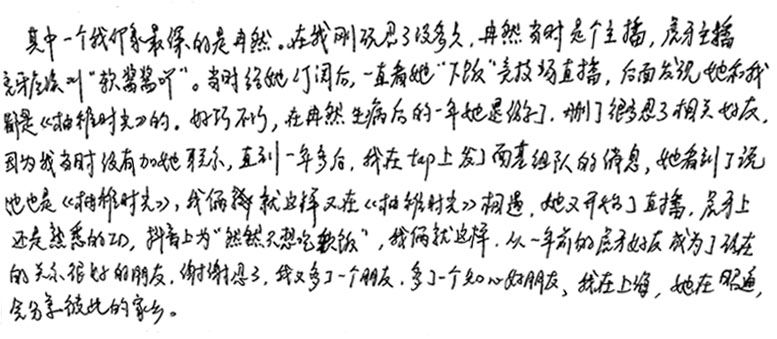 其中一个我印象最深的是冉然。在我刚玩忍3没多久,冉然当时是个主播,虎牙主播
虎牙应该叫“软酱酱吖”。当时给她订阅后,一直看她“下饭”竞技场直播,后面发现她和我
都是《柏稚时光》的。好巧不巧,在冉然生病后的一年她退游了,删了很多忍3相关好友,
因为我当时没有加她联系,直到一年多后,我在tap上发了面基组队的信息,她看到了说
她也是《柏稚时光》,我俩就这样又在《柏稚时光》相遇,她又开始了直播,虎牙上
还是熟悉的ID,抖音上为“然然只想吃软饭”,我俩就这样,从一年前的虎牙好友成为了现在
的关系很好的朋友,谢谢忍3,我又多了一个朋友,多了一个知心好朋友、我在上海,她在昭通,
会分享彼此的家乡。